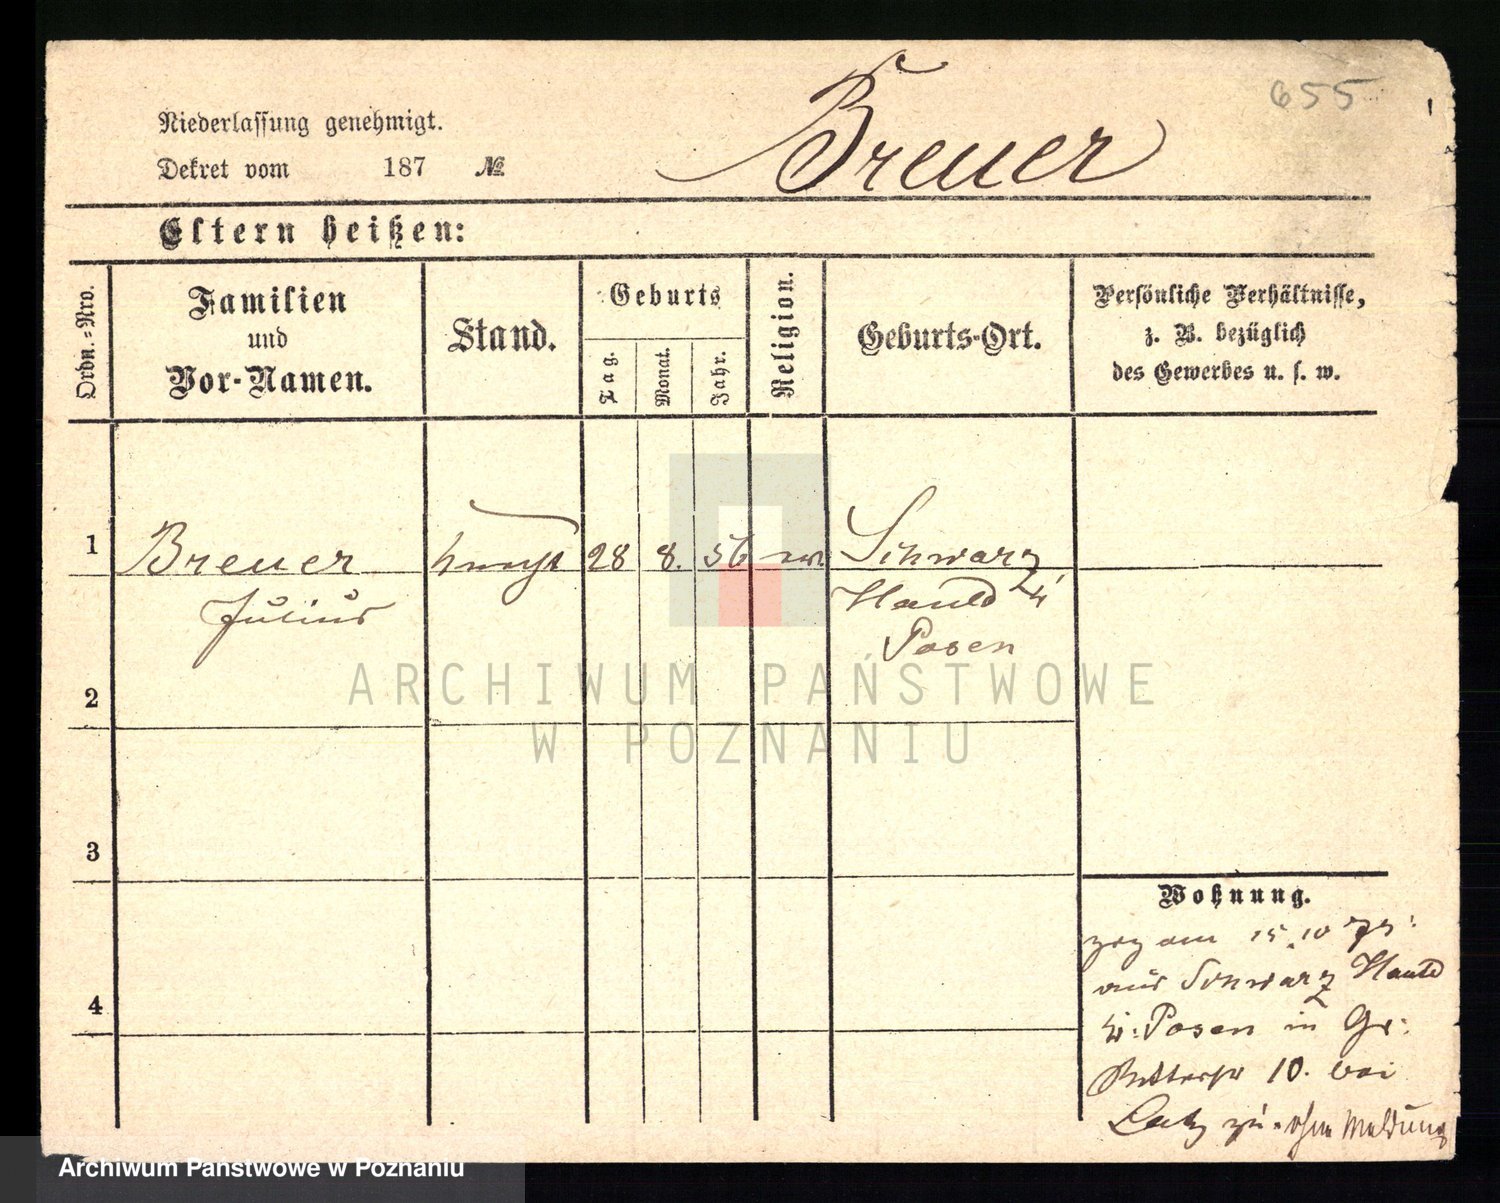 655
Breuer
Niederlassung genehmigt.
Dekret vom 187 №
Eltern heißen:
Ordn.-Nro.
Familien
und
Vor-Namen.
Stand.
Geburts
Tag.
Monat.
Jahr.
Religion.
Geburts-Ort.
Persönliche Verhältnisse,
z. B. bezüglich
des Gewerbes u. s. w.
1 Breuer 28 8. 56 Schwarz
Julius Hauld
Posen
2
3
4
Wohnung.
zog am 15.10
aus Schwarz Hauld
Posen in Gr.
10. bei
zu. ohne Meldung
ARCHIWUM PAŃSTWOWE
W POZNANIU
Archiwum Państwowe w Poznaniu